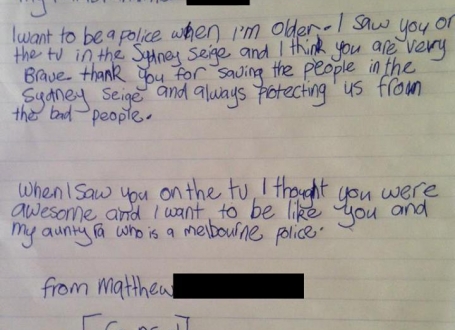 I want to be a police when I'm older. I saw you on
the tv in the Sydney Seige and I think you are very
Brave thank you for saving the people in the
Sydney Seige and always protecting us from
the bad people.
When I saw you on the tv I thought you were
awesome and I want to be like you and
my aunty who is a melbourne police.
from Matthew